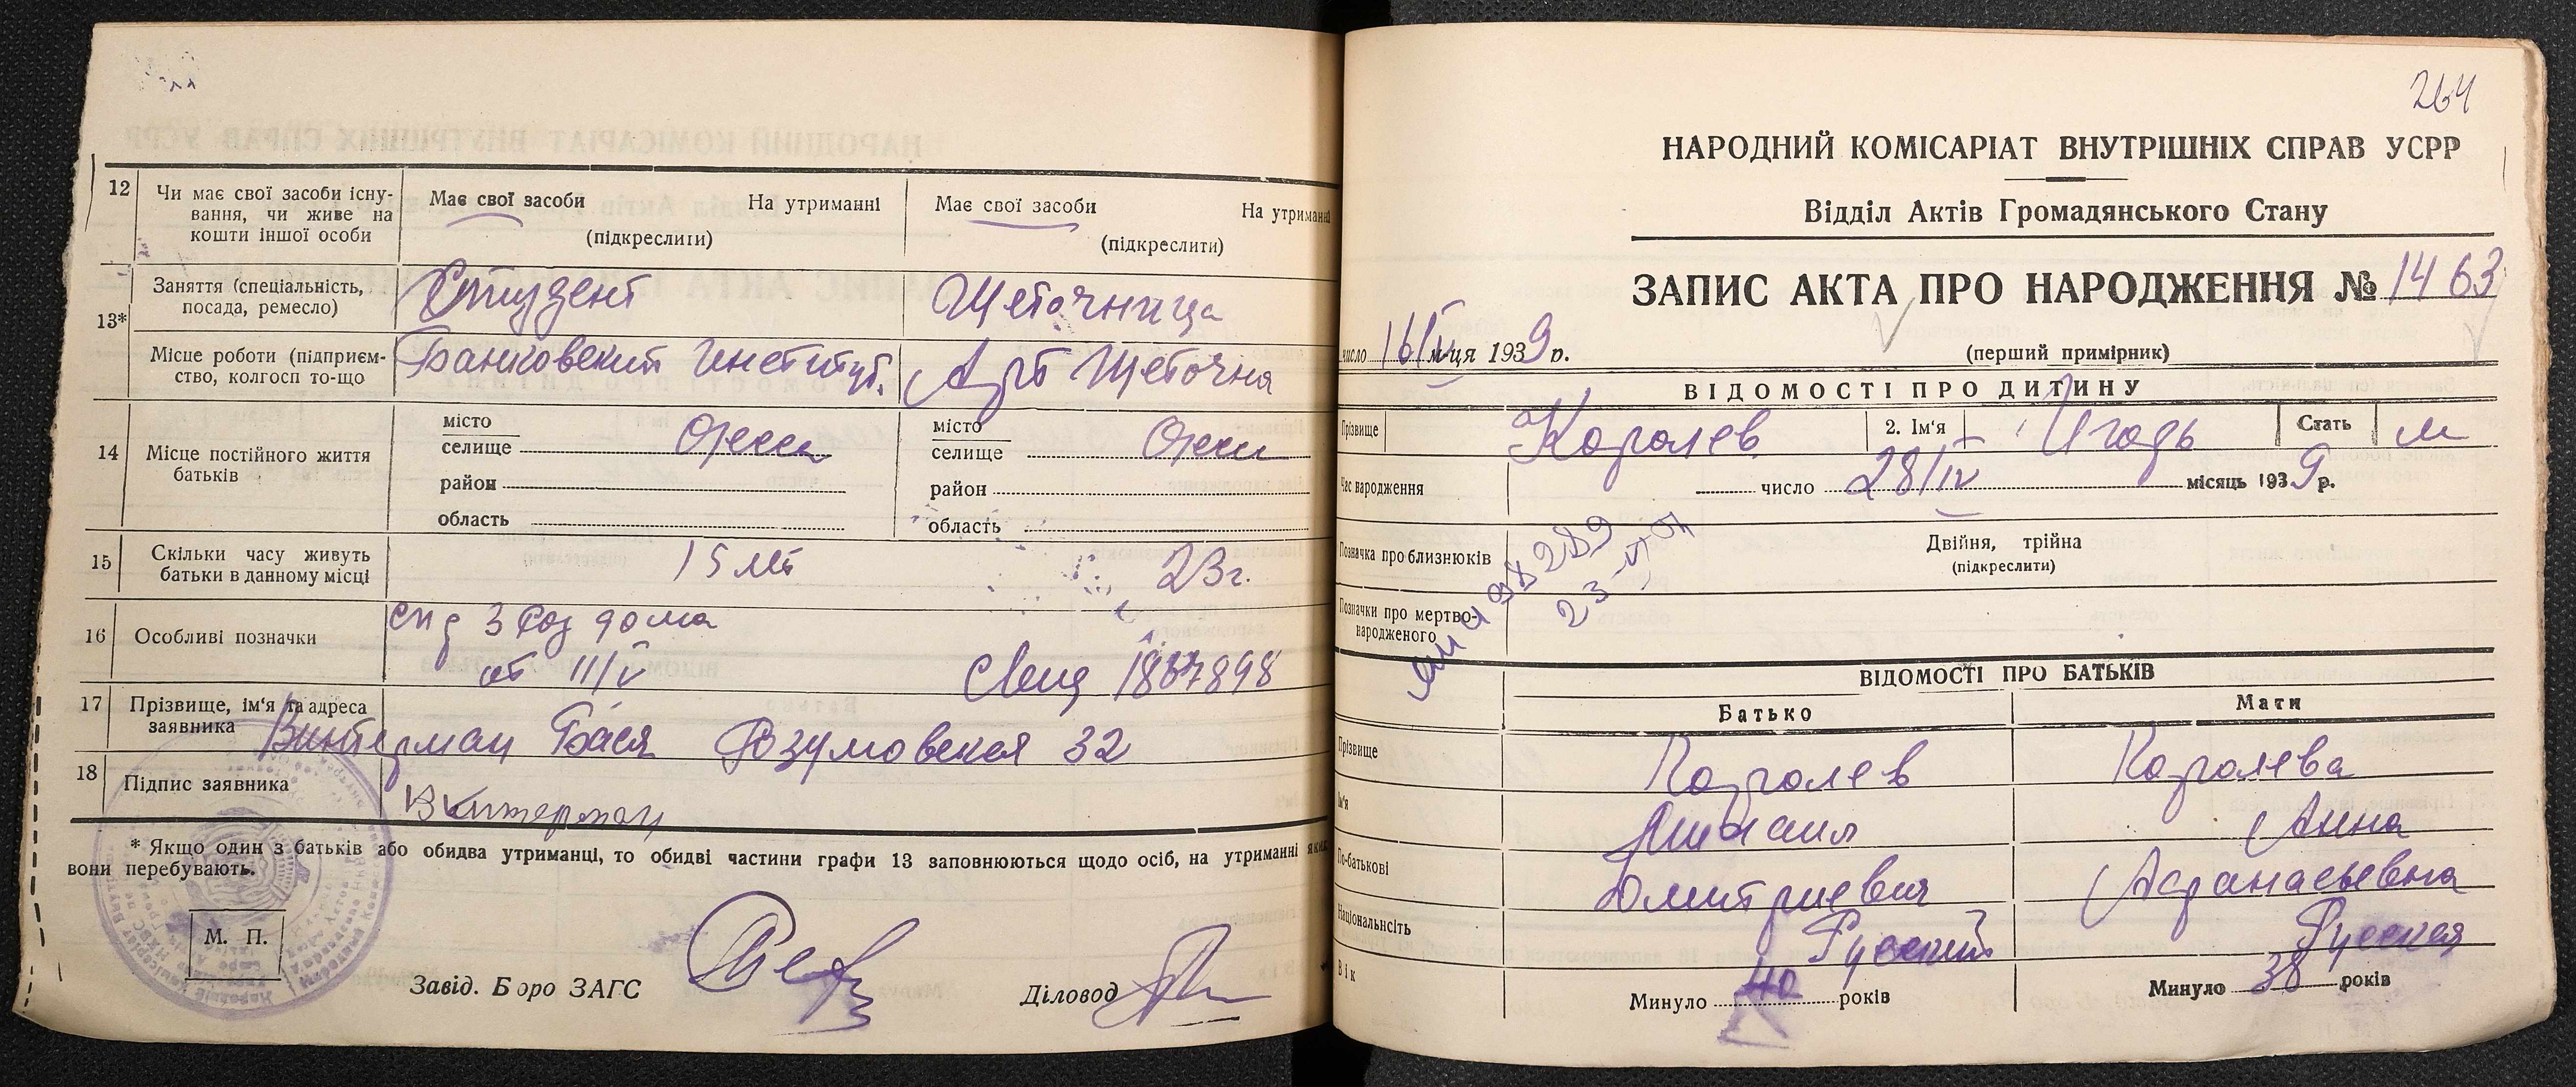 12 Чи має свої засоби існу-
вання, чи живе на
кошти іншої особи
Має свої засоби На утриманні
(підкреслити)
Має свої засоби На утриманні
(підкреслити)
13*
Заняття (спеціальність,
посада, ремесло)
Студент
Щеточница
Місце роботи (підприєм-
ство, колгосп то-що
Банковский Институт.
Арт Щеточня
14 Місце постійного життя
батьків
місто
селище Одесса
район
область
місто
селище Одесс
район
область
15 Скільки часу живуть
батьки в данному місці
15 лет
23 г.
16 Особливі позначки
спд 3 Род дома
от 11/V Свид 1867898
17 Прізвище, ім'я та адреса
заявника
Винтерман Бася Розумовская 32
18 Підпис заявника
Винтерман
* Якщо один з батьків або обидва утриманці, то обидві частини графи 13 заповнюються щодо осіб, на утриманні яких
вони перебувають.
М. П.
Завід. Бюро ЗАГС
Діловод
264
НАРОДНИЙ КОМІСАРІАТ ВНУТРІШНІХ СПРАВ УСРР
Відділ Актів Громадянського Стану
ЗАПИС АКТА ПРО НАРОДЖЕННЯ № 1463
число 16/V м-ця 1939 р.
(перший примірник)
ВІДОМОСТІ ПРО ДИТИНУ
Прізвище Королев 2. Ім'я Игорь Стать м
Час народження число 28/IV місяць 1939 р.
Позначка про близнюків
Двійня, трійна
(підкреслити)
Позначки про мертво-
народженого
ВІДОМОСТІ ПРО БАТЬКІВ
Батько Мати
Прізвище Королев Королева
Ім'я Михаил Анна
По-батькові Дмитриевич Афанасьевна
Національсіть Русский Русская
Вік Минуло 40 років Минуло 38 років